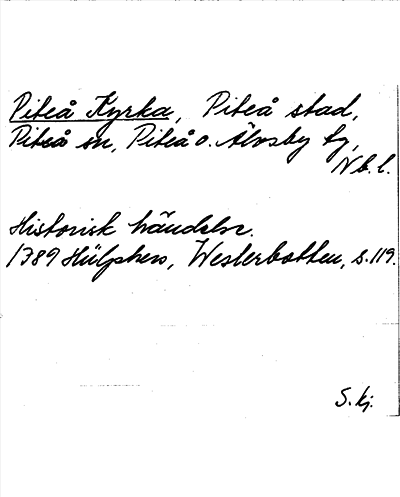 Piteå Kyrka, Piteå stad,
Piteå sn, Piteå o. Älvsby tg,
Nb. l.
Historisk händelse.
1789 Hülphers, Westerbotten, s. 119.
S. kj.